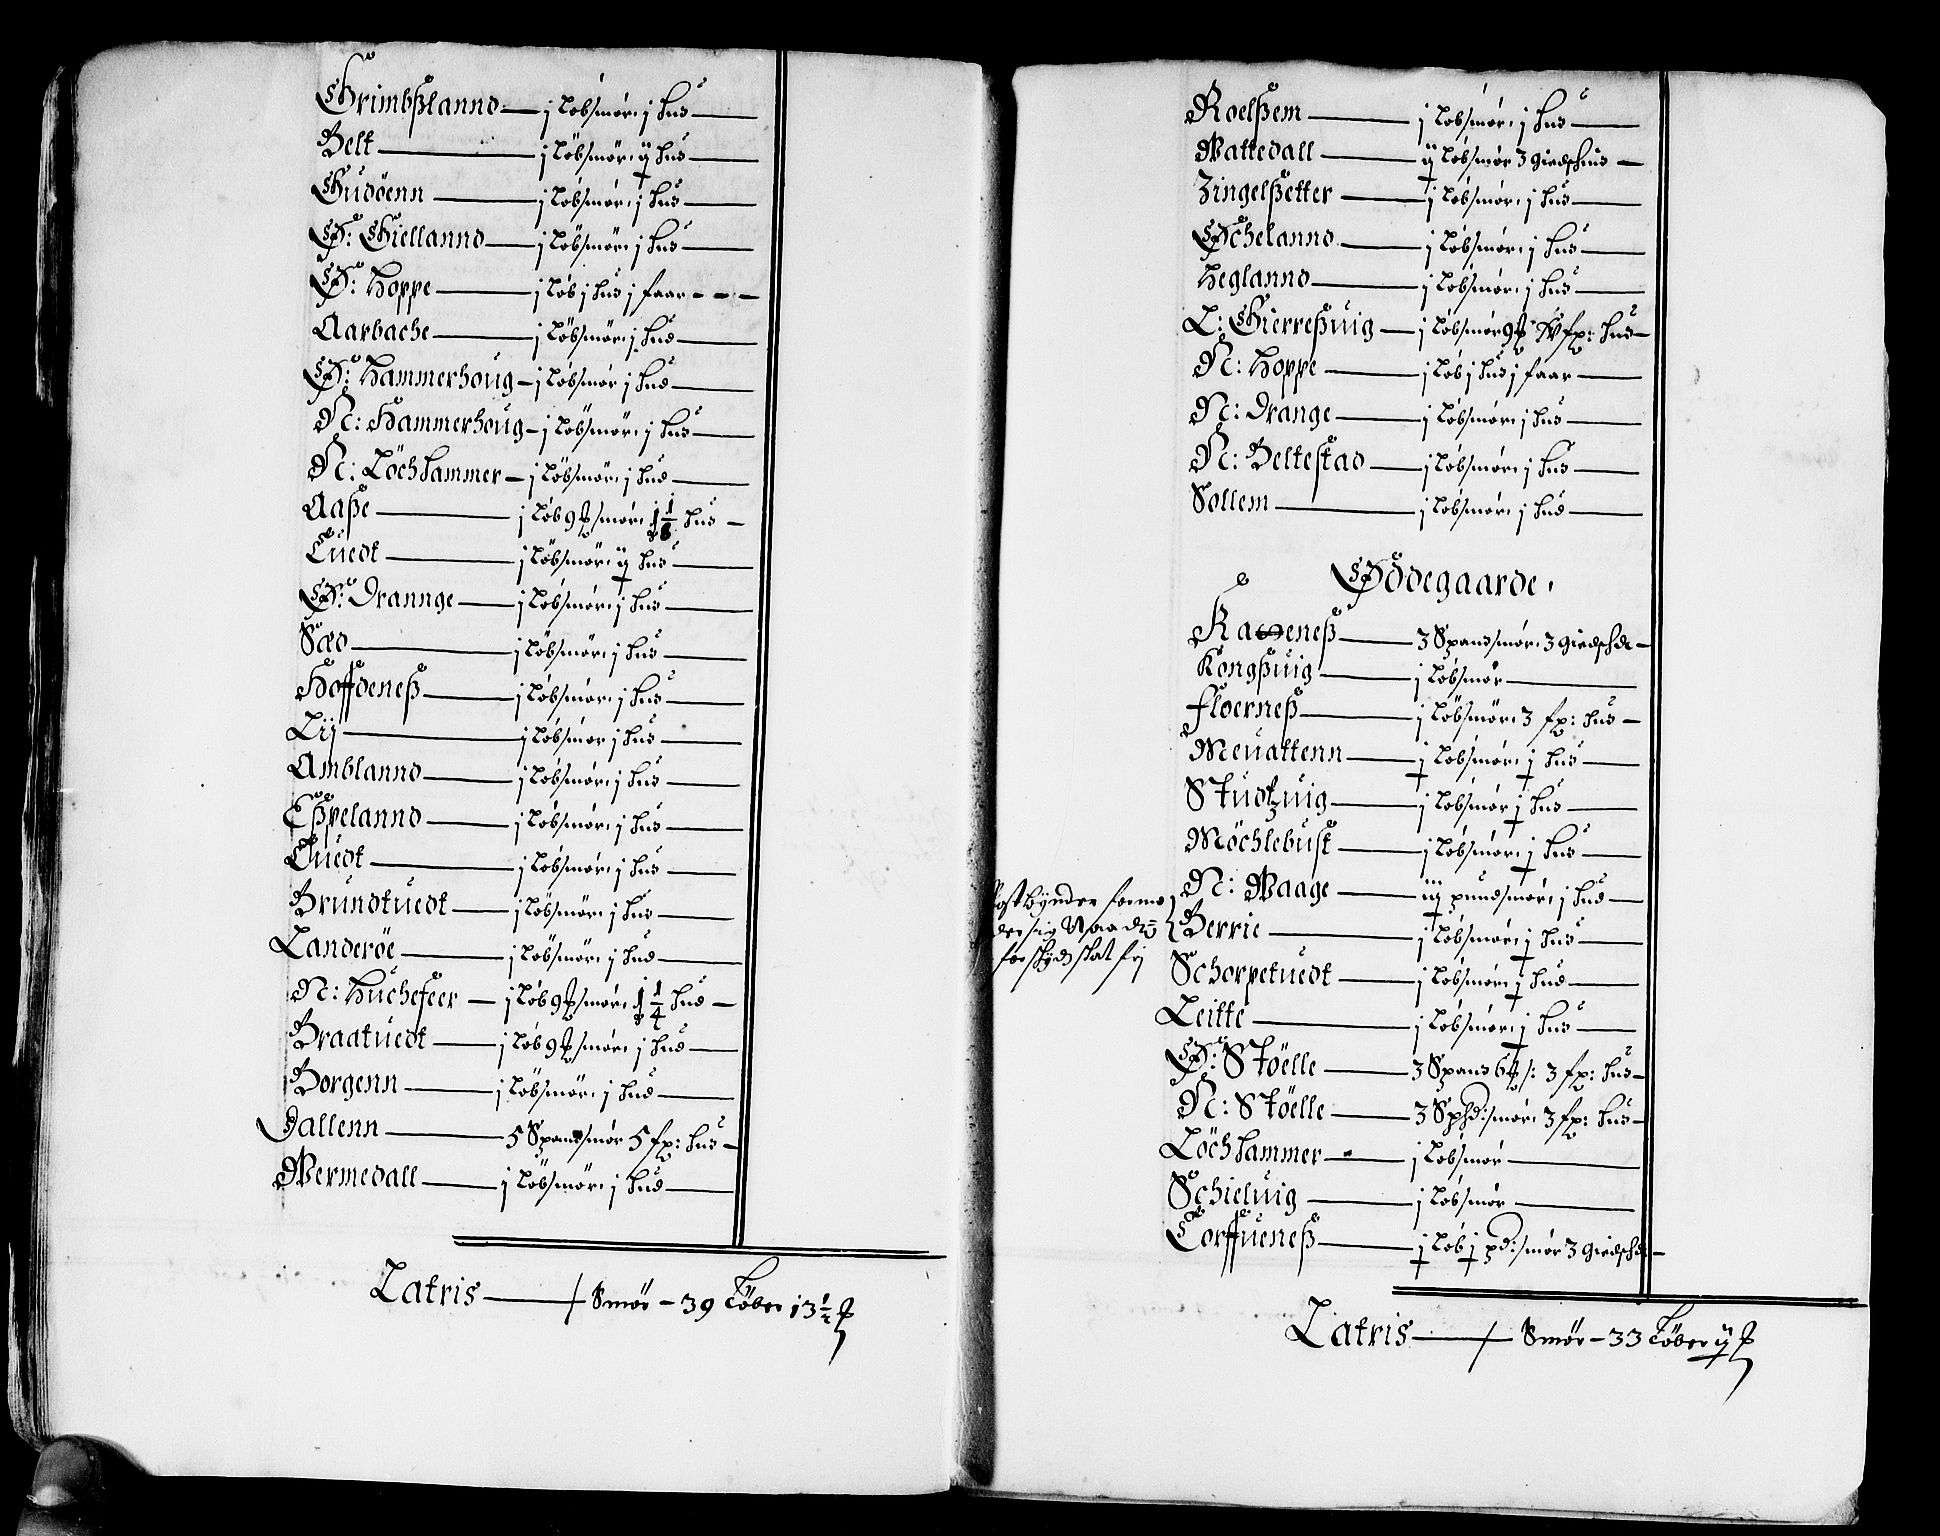 Grimbßlannd — j Løbsmør, j Hud —
Velt — j Løbsmør, ij Hud —
Gudöenn — j Løbsmør, j Hud —
Ø: Giellannd — j Løbsmør, j Hud —
Ø: Hoppe — j Løb j Hud j faar — — —
Aarbache — j Løbsmør, j Hud —
Ø: Hammerhoug — j Løbsmør j Hud —
N: Hammerhoug — j Løbsmør, j Hud —
N: Löchhammer — j Løbsmør, j Hud —
Aaße — j Løb 9 ℔ smør, 1 1/8 Hud —
Tuedt — j Løbsmør, ij Hud —
Ø: Drannge — j Løbsmør, j Hud —
Sæd — j Løbsmør, j Hud —
Hoffdeneß — j Løbsmør, j Hud —
Lij — j Løbsmør j Hud —
Amblannd — j Løbsmør, j Hud —
Eßpelannd — j Løbsmør, j Hud —
Tuedt — j Løbsmør, j Hud —
Brundtuedt — j Løbsmør, j Hud —
Landeröe — j Løbsmør, j Hud —
N: Huchefeer — j Løb 9 ℔ smør, 1 1/4 Hud —
Braatuedt — j Løb 9 ℔ smør, j Hud —
Borgenn — j Løbsmør, j Hud —
Dallenn — 5 Spandsmør 5 fp: Hud —
Wermedall — j Løbsmør, j Hud —
Latris — / Smør — 39 Løber 13 1/2 ℔
Roelßem — j Løbsmør, j Hud —
Wattedall — ij Løbsmør 3 giedschind —
Zingelßetter — j Løbsmør, j Hud —
Øchelannd — j Løbsmør, j Hud —
Heglannd — j Løbsmør, j Hud —
L: Gierreßuig — j Løbsmør 9 ℔ fp: Hud —
N: Hoppe — j Løb j Hud j faar —
N: Drange — j Løbsmør, j Hud —
N: Veltestad — j Løbsmør, j Hud —
Sollem — j Løbsmør, j Hud —
Ødegaarde,
Raeneß — 3 Spandsmør, 3 giedsch —
Kongßuig — j Løbsmør —
Floerneß — j Løbsmør, 3 fp: Hud —
Meuattenn — j Løbsmør, j Hud —
Studtzuig — j Løbsmør j Hud —
Möchlebust — j Løbsmør, j Hud —
N: Waage — iij pundsmør, j Hud —
Berrie — j Løbsmør, j Hud —
Schorpetuedt — j Løbsmør, j Hud —
Leitte — j Løbsmør, j Hud —
Ø: Stöelle — 3 Spand 6 ℔ s: 3 fp: Hud —
N: Stöelle — 3 Sphd: smør, 3 fp: Hud —
Löchhammer — j Løbsmør —
Schieluig — j Løbsmør —
Torffueneß — j Løb j pd: smør 3 giedsch —
Latris — / Smør — 33 Løber ij ℔